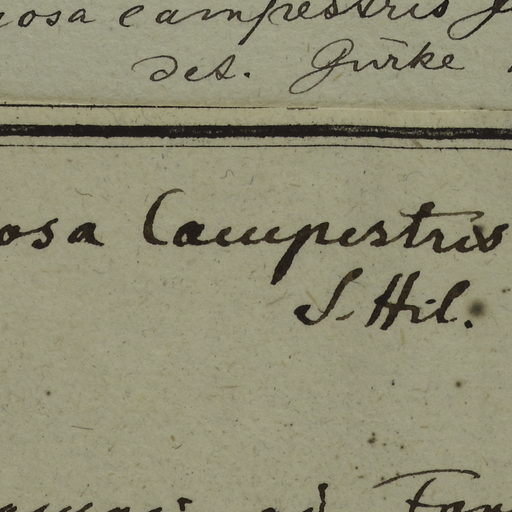 osa campestris
det. Gürke
osa Campestris
S. Hil.